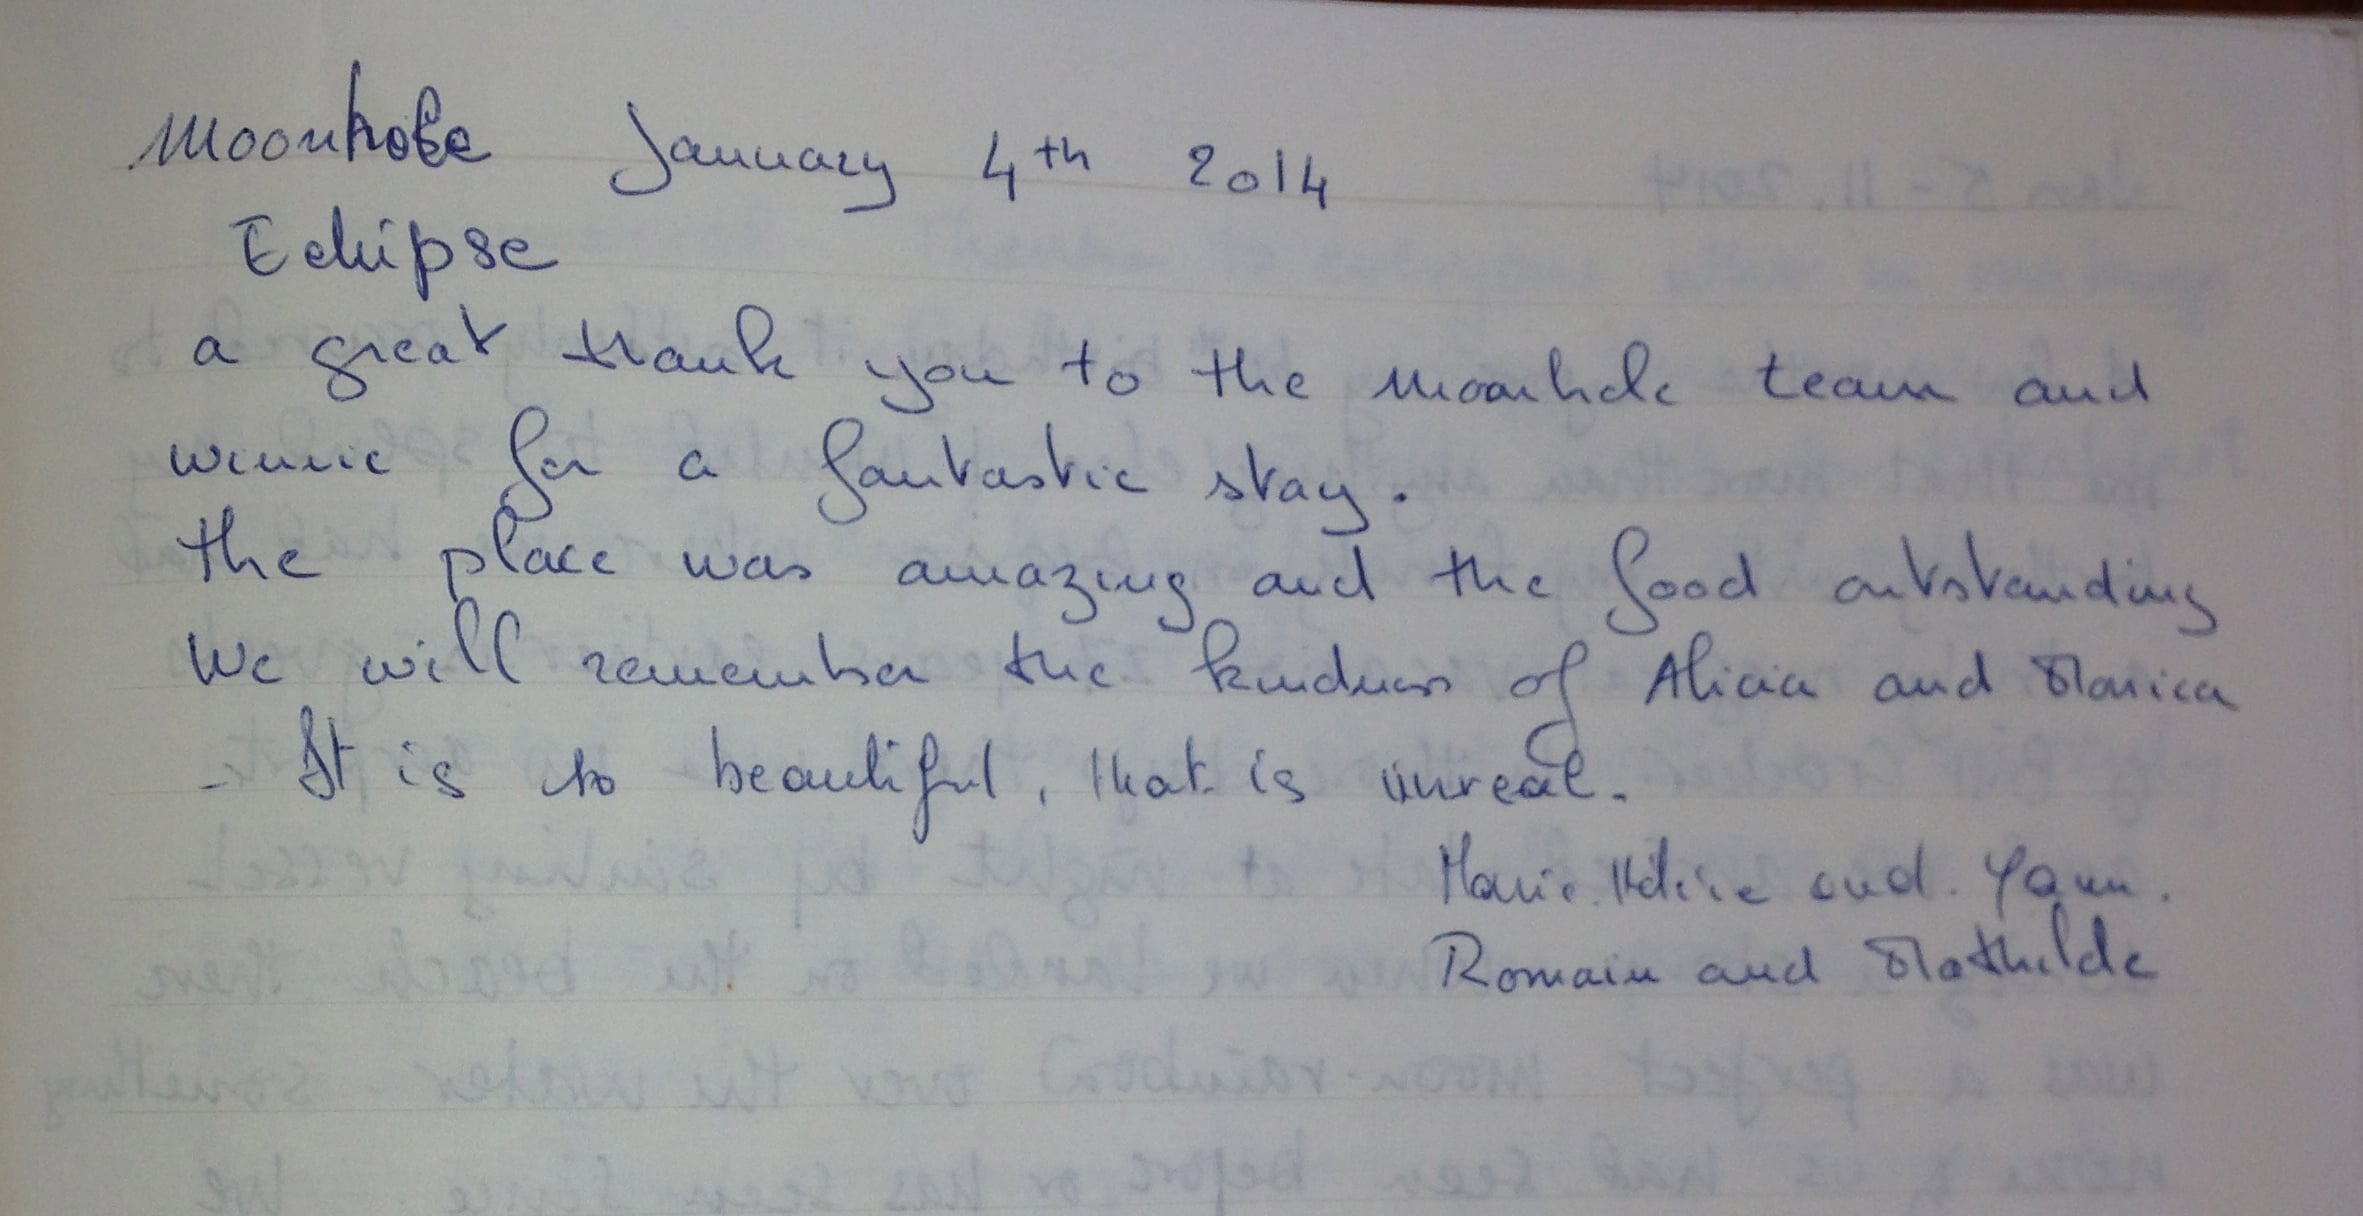 Moonhole January 4th 2014
Eclipse
a great thank you to the moonhole team and
winnie for a fantastic stay.
the place was amazing and the food outstanding
We will remember the kindness of Alicia and Monica
- It is so beautiful, that is unreal.
Marie and Yann.
Romain and Mathilde